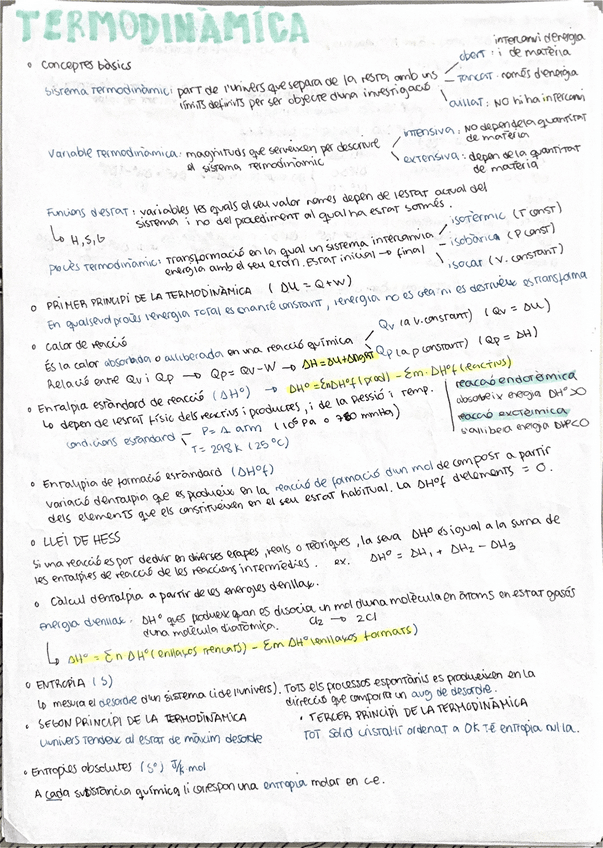 TERMODINÀMICA
• conceptes bàsics
Sistema termodinàmic: part de l'univers que separa de la resta amb uns límits definits per ser objecte d'una investigació
obert: i intercanvi d'energia i de matèria
tancat: només d'energia
aïllat: NO hi ha intercanvi
Variable termodinàmica: magnituds que serveixen per descriure el sistema termodinàmic
intensiva: NO depen de la quantitat de matèria
extensiva: depen de la quantitat de matèria
Funcions d'estat: variables les quals el seu valor només depen de l'estat actual del sistema i no del procediment al qual ha estat sotmès.
↳ H, S, G
procès termodinàmic: transformació en la qual un sistema intercanvia energia amb el seu entorn. Estat inicial → final
isotèrmic (T const)
isobàrica (P const)
isocor (V. constant)
• PRIMER PRINCIPI DE LA TERMODINÀMICA (ΔU = Q+W)
En qualsevol procés l'energia total es manté constant, l'energia no es crea ni es destrueix es transforma
• calor de reacció
És la calor absorbida o alliberada en una reacció química
Qv (a v. constant) (Qv = ΔU)
Qp (a p constant) (Qp = ΔH)
Relació entre Qv i Qp → Qp = Qv - W → ΔH = ΔU + ΔnRT
• Entalpia estàndard de reacció (ΔH°) → ΔH° = Σn ΔH°f (prod) - Σm · ΔH°f (reactius)
↳ depen de l'estat físic dels reactius i productes, i de la pressió i temp.
condicions estàndard
P = 1 atm (10⁵ Pa o 760 mmHg)
T = 298K (25°C)
reacció endotèrmica
absorbeix energia ΔH°>0
reacció exotèrmica
s'allibera energia ΔH°<0
• Entalpia de formació estàndard (ΔH°f)
variació d'entalpia que es produeix en la reacció de formació d'un mol de compost a partir
dels elements que els constitueixen en el seu estat habitual. La ΔH°f d'elements = 0.
• LLEI DE HESS
Si una reacció es pot deduir en diverses etapes, reals o teòriques, la seva ΔH° és igual a la suma de
les entalpies de reacció de les reaccions intermèdies. ex. ΔH° = ΔH₁ + ΔH₂ - ΔH₃
• Càlcul d'entalpia a partir de les energies d'enllaç.
energia d'enllaç: ΔH° que es produeix quan es disocia un mol d'una molècula en àtoms en estat gasós
d'una molècula diatòmica. Cl₂ → 2Cl
↳ ΔH° = Σn ΔH° (enllaços trencats) - Σm ΔH° (enllaços formats)
• ENTROPIA (S)
↳ mesura el desordre d'un sistema (i de l'univers). Tots els processos espontànis es produeixen en la
direcció que comporta un aug de desordre.
• SEGON PRINCIPI DE LA TERMODINÀMICA
L'univers tendeix al estat de màxim desordre
• TERCER PRINCIPI DE LA TERMODINÀMICA
Tot sòlid cristal·lí ordenat a 0K té entropia nul·la.
• Entropies absolutes (S°) J/k mol
A cada substància química li correspon una entropia molar en c.e.